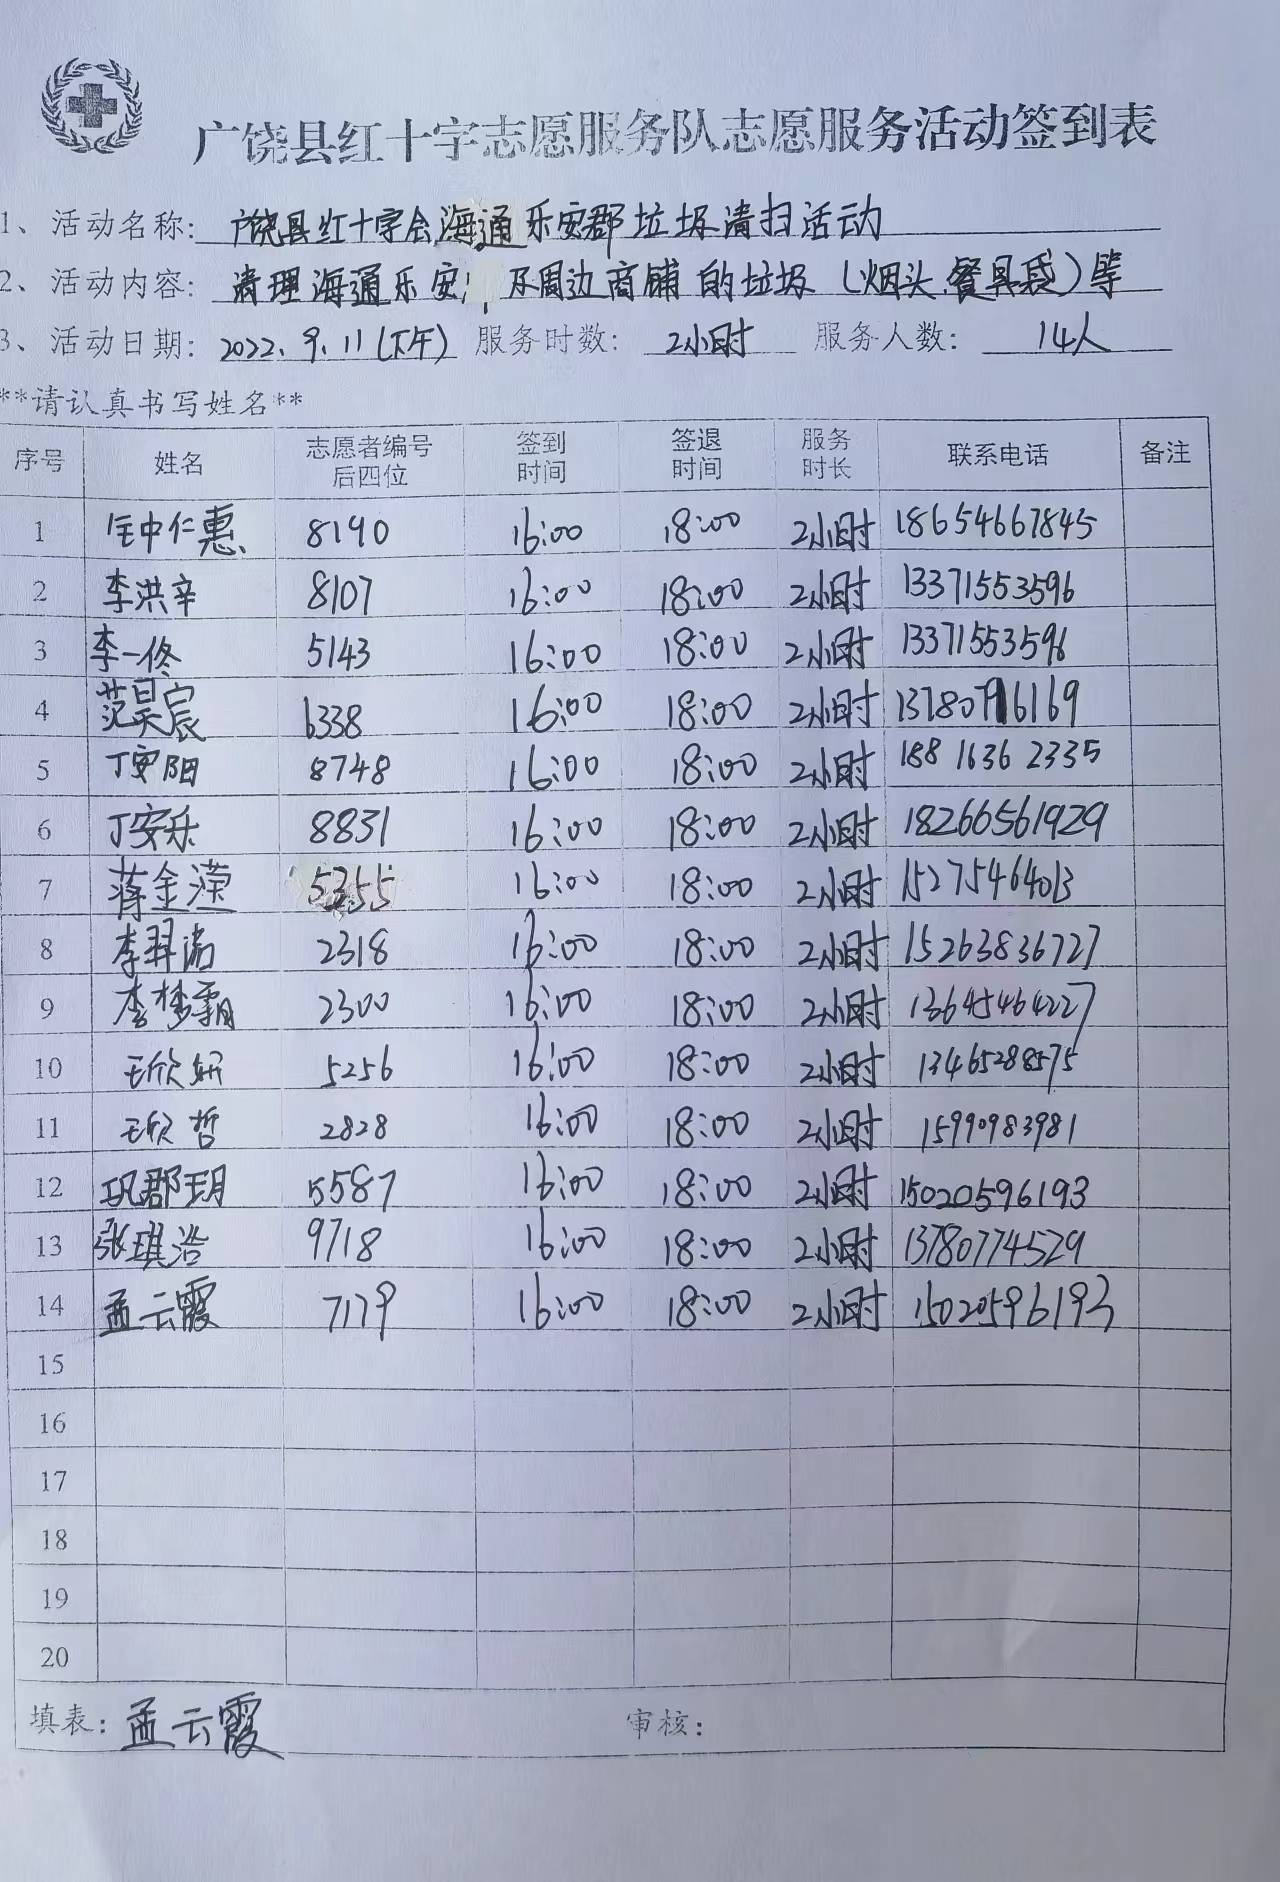 广饶县红十字志愿服务队志愿服务活动签到表
1、活动名称: 广饶县红十字会海通乐安郡垃圾清扫活动
2、活动内容: 清理海通乐安 及周边商铺的垃圾（烟头、餐具袋）等
3、活动日期: 2022.9.11(下午) 服务时数: 2小时 服务人数: 14人
**请认真书写姓名**
序号 姓名 志愿者编号后四位 签到时间 签退时间 服务时长 联系电话 备注
1 中仁惠 8190 16:00 18:00 2小时 18654667845
2 李洪辛 8107 16:00 18:00 2小时 13371553596
3 李一佟 5143 16:00 18:00 2小时 13371553596
4 范昊宸 6338 16:00 18:00 2小时
5 丁安阳 8748 16:00 18:00 2小时 188 1636 2335
6 丁安乐 8831 16:00 18:00 2小时 18266561929
7 蒋金滢 5355 16:00 18:00 2小时 15275464013
8 李羿诺 2318 16:00 18:00 2小时 15263836727
9 李梦霜 2300 16:00 18:00 2小时 13645464227
10 王欣妍 5256 16:00 18:00 2小时 13465288575
11 王欣哲 2828 16:00 18:00 2小时 15990983981
12 巩郡玥 5587 16:00 18:00 2小时 15020596193
13 张琪浛 9718 16:00 18:00 2小时 13780774529
14 孟云霞 7179 16:00 18:00 2小时 15020596193
15
16
17
18
19
20
填表: 孟云霞 审核: